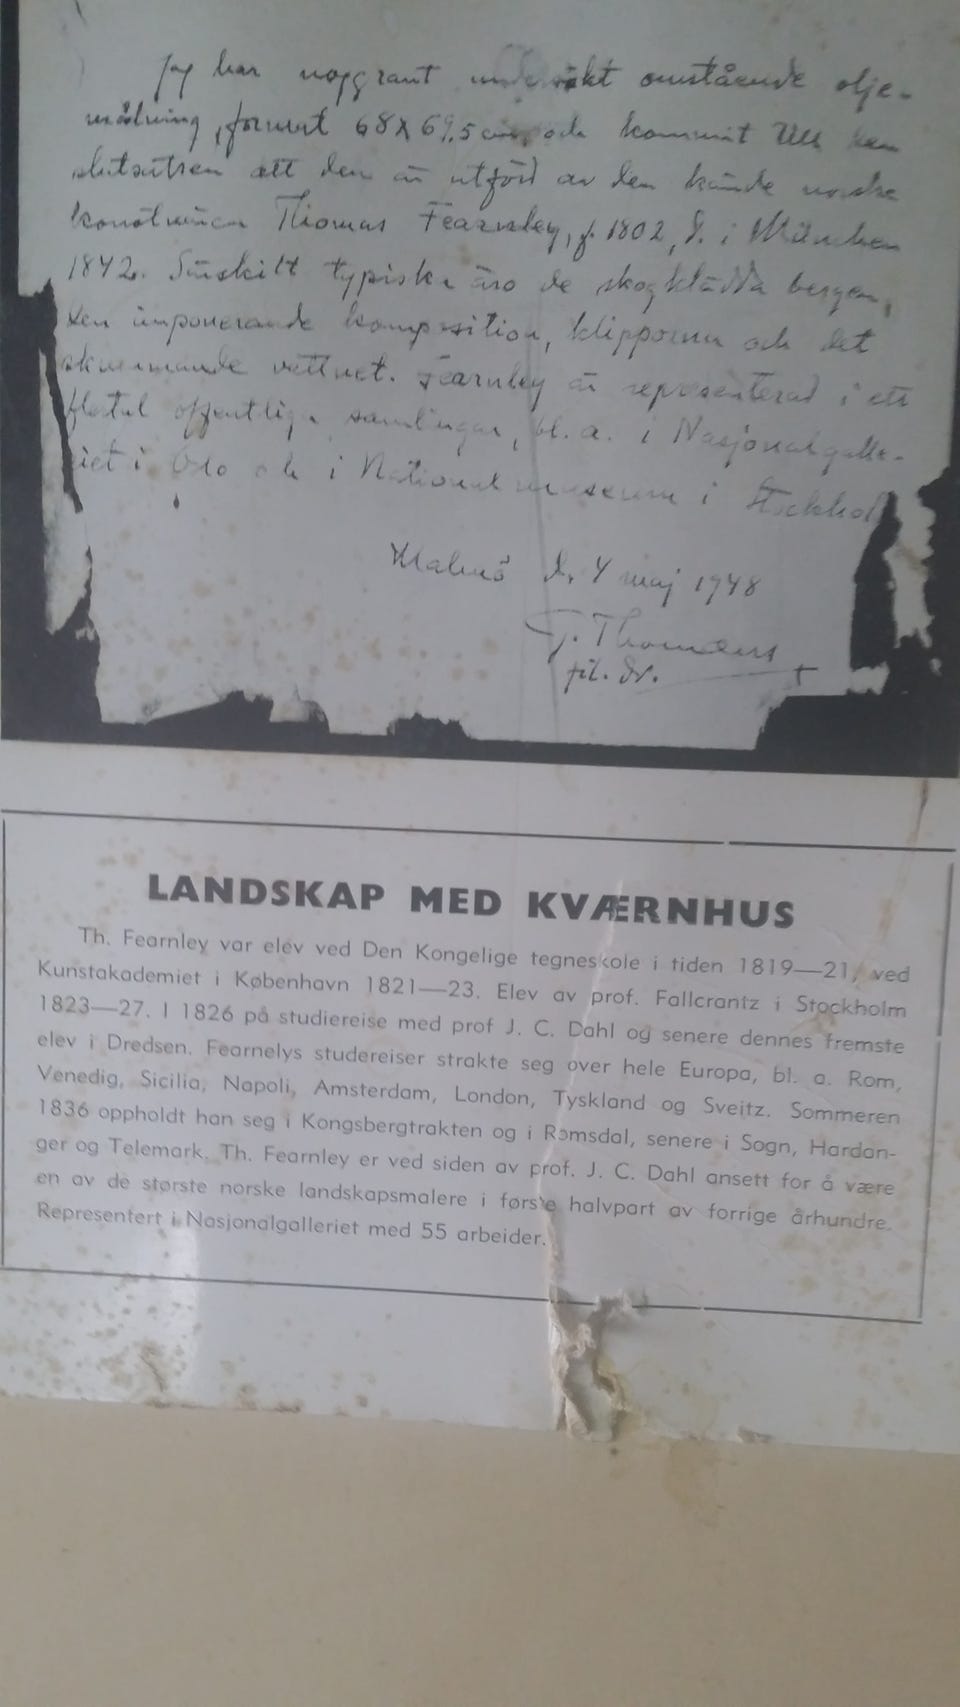 Jag har noggrant undersökt omstående olje-
målning, format 68 x 69,5 cm, och kommit till den
slutsatsen att den är utförd av den kände norske
konstnären Thomas Fearnley, f. 1802, d. i München
1842. Särskilt typiska äro de skogklädda bergen,
den imponerande komposition, klipporna och det
skummande vattnet. Fearnley är representerad i ett
flertal offentliga samlingar, bl. a. i Nasjonalgalle-
riet i Oslo och i Nationalmuseum i Stockhol
Malmö d. 4 maj 1948
fil. dr.
LANDSKAP MED KVÆRNHUS
Th. Fearnley var elev ved Den Kongelige tegneskole i tiden 1819—21, ved
Kunstakademiet i København 1821—23. Elev av prof. Fallcrantz i Stockholm
1823—27. I 1826 på studiereise med prof J. C. Dahl og senere dennes fremste
elev i Dredsen. Fearnelys studereiser strakte seg over hele Europa, bl. a. Rom,
Venedig, Sicilia, Napoli, Amsterdam, London, Tyskland og Sveitz. Sommeren
1836 oppholdt han seg i Kongsbergtrakten og i Romsdal, senere i Sogn, Hardan-
ger og Telemark. Th. Fearnley er ved siden av prof. J. C. Dahl ansett for å være
en av de største norske landskapsmalere i første halvpart av forrige århundre.
Representert i Nasjonalgalleriet med 55 arbeider.